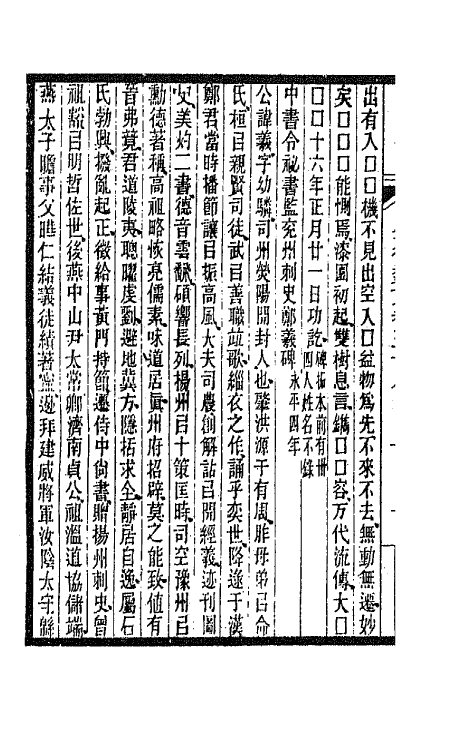 出有入囗囗機不見出空入囗益物爲先不來不去無動無遷妙
矣囗囗囗能惻焉漆園初起雙樹息言鐫囗囗容万代流傳大囗
囗囗十六年正月廿一日功訖碑拓本前有卌四人姓名不錄
中書令祕書監兗州刺史鄭羲碑永平四年
公諱羲字幼驎司州滎陽開封人也肇洪源于有周胙母弟㠯命
氏桓㠯親賢司徒武㠯善職竝歌緇衣之作誦乎奕世降逮于漢
鄭君當時播節讓㠯振高風大夫司農創解詁㠯開經義迹刊圖
史美灼二書德音雲翻碩響長列揚州㠯十策匡時司空豫州㠯
勳德著稱高祖略恢亮儒素味道居眞州府招辟莫之能致値有
晉弗竟君道陵夷聰曜虔劉避地冀方隱括求全靜居自逸屬石
氏勃興撥亂起正徵給事黃門持節遷侍中尚書贈揚州刺史曾
祖豁㠯明哲佐世後燕中山尹太常卿濟南貞公祖溫道協儲端
燕太子瞻事父曄仁結義徒績著寧邊拜建威將軍汝陰太守緜